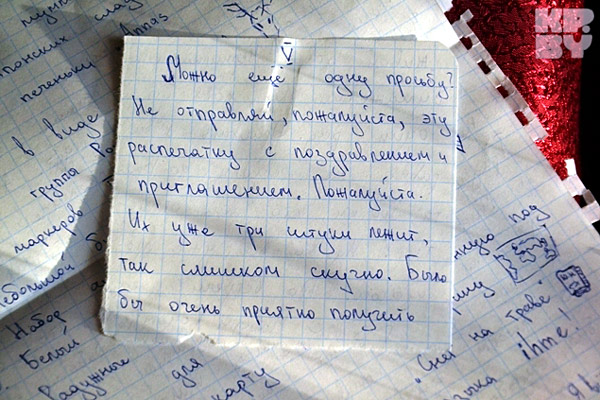 KP.BY
понских слад
Annas
печеньки
в виде
группа Ра
маркеров
небольшой б
Набор
Белый
Радужные для
карту
V
Можно ещё одну просьбу?
Не отправляй, пожалуйста, эту
распечатку с поздравлением и
приглашением. Пожалуйста.
Их уже три штуки лежит,
так слишком скучно. Было
бы очень приятно получить
нную под
"Снег на траве"
зыка ihme!
Я в